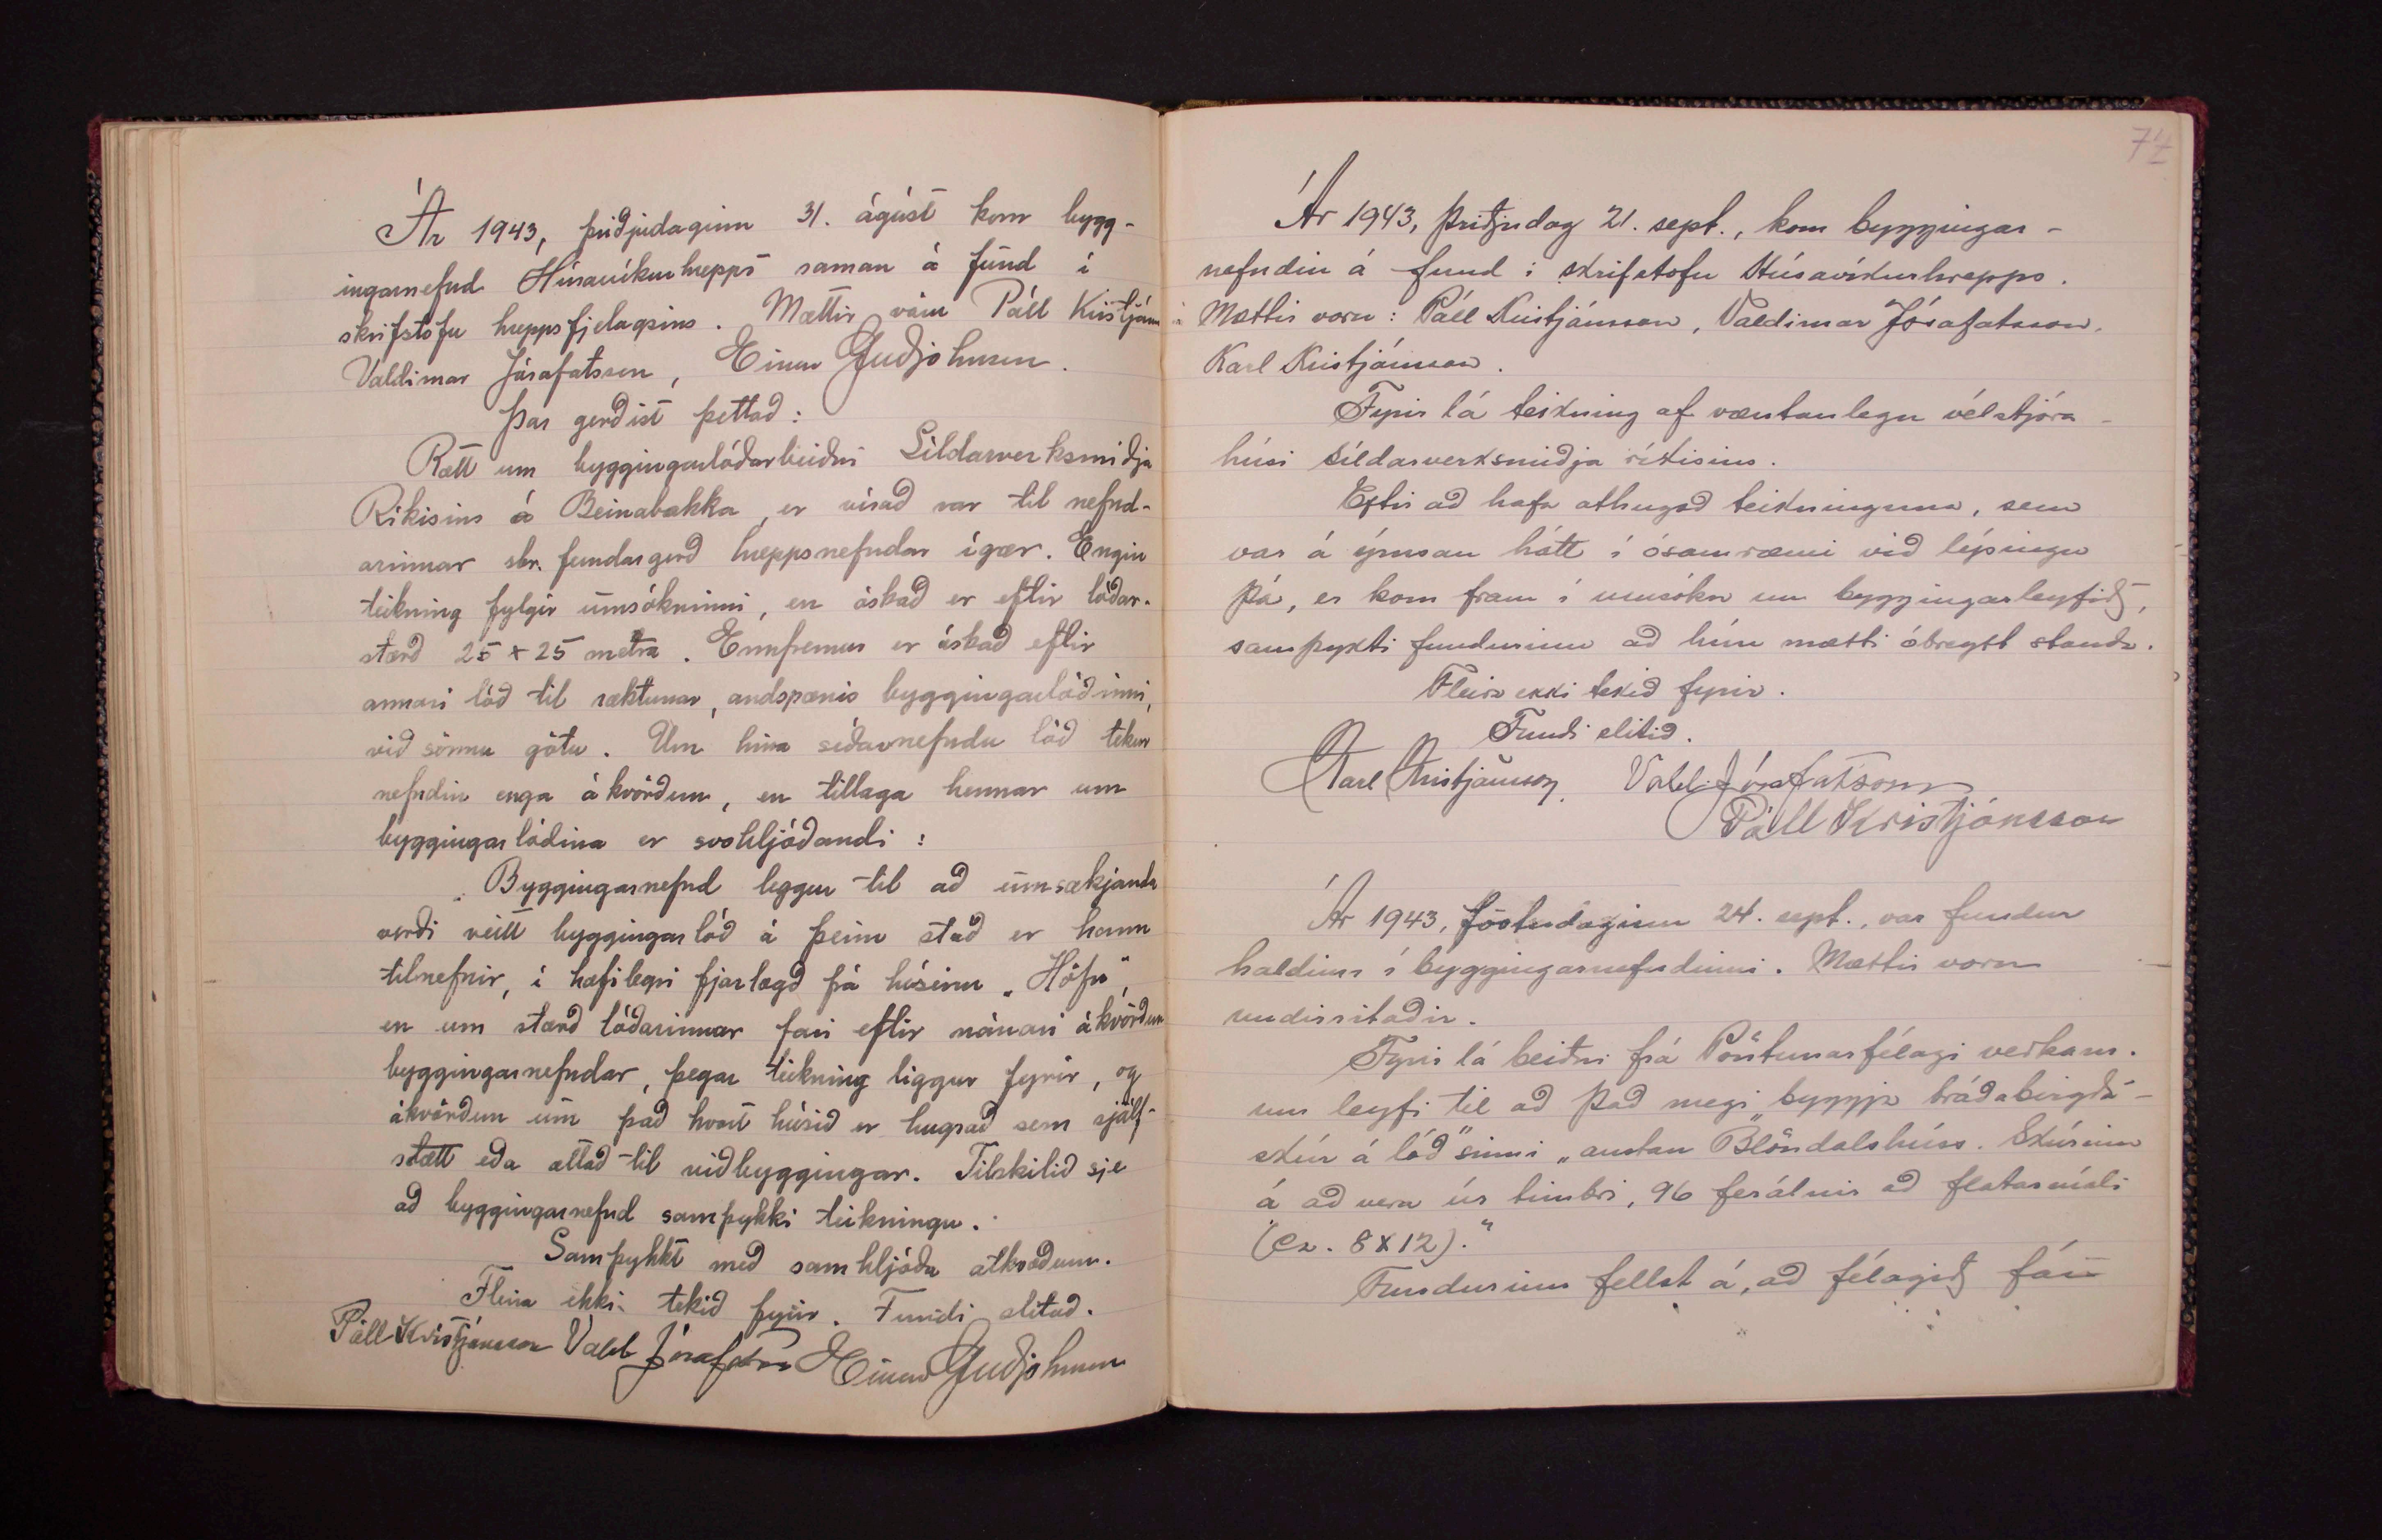 Ár 1943, þriðjudaginn 31. ágúst kom bygg-
ingarnefnd Húsavíkurhrepps saman á fund í
skrifstofu hreppsfjelagsins. Mættir vóru Páll Kristjáns
Valdimar Jósafatsson, Einar Guðjohnsen.
Þar gerðist þettað:
Rætt um byggingarlóðarbeiðni Síldarverksmiðja
Ríkisins á Beinabakka, er vísað var til nefnd-
arinnar sbr. fundargerð hreppsnefndar ígær. Engin
teikning fylgir umsókninni, en óskað er eftir lóðar-
stærð 25 x 25 metra. Ennfremur er óskað eftir
annari lóð til ræktunar, andspænis byggingarlóðinni,
við sömu götu. Um hina síðarnefndu lóð tekur
nefndin enga ákvörðun, en tillaga hennar um
byggingarlóðina er svohljóðandi:
Byggingarnefnd leggur til að umsækjanda
verði veitt byggingarlóð á þeim stað er hann
tilnefnir, í hæfilegri fjarlægð frá húsinu „Höfn",
en um stærð lóðarinnar fari eftir nánari ákvörðun
byggingarnefndar, þegar teikning liggur fyrir, og
ákvörðun um það hvort húsið er hugsað sem sjálf-
stætt eða ætlað til viðbyggingar. Tilskilið sje
að byggingarnefnd samþykki teikningu.
Samþykkt með samhljóða atkvæðum.
Fleira ekki tekið fyrir. Fundi slitað.
Páll Kristjánsson Vald Jósafatsson Einar Guðjohnsen
74
Ár 1943, þriðjudag 21. sept., kom byggingar-
nefndin á fund í skrifstofu Húsavíkurhrepps.
Mættir voru: Páll Kristjánsson, Valdimar Jósafatsson,
Karl Kristjánsson.
Fyrir lá teikning af væntanlegu vélstjóra-
húsi síldarverksmiðja ríkisins.
Eftir að hafa athugað teikninguna, sem
var á ýmsan hátt í ósamræmi við lýsingu
þá, er kom fram í umsókn um byggingarleyfið,
samþykti fundurinn að hún mætti óbreytt standa.
Fleira ekki tekið fyrir.
Fundi slitið.
Karl Kristjánsson. Vald. Jósafatsson
Páll Kristjánsson
Ár 1943, föstudaginn 24. sept., var fundur
haldinn í byggingarnefndinni. Mættir voru
undirritaðir.
Fyrir lá beiðni frá Pöntunarfélagi verkam.
um leyfi til að það megi „byggja bráðabirgða-
skúr á lóð" sinni „austan Blöndalshúss. Skúrinn
á að vera úr timbri, 96 ferálnir að flatarmáli
(ca. 8 x 12)."
Fundurinn fellst á, að félagið fái